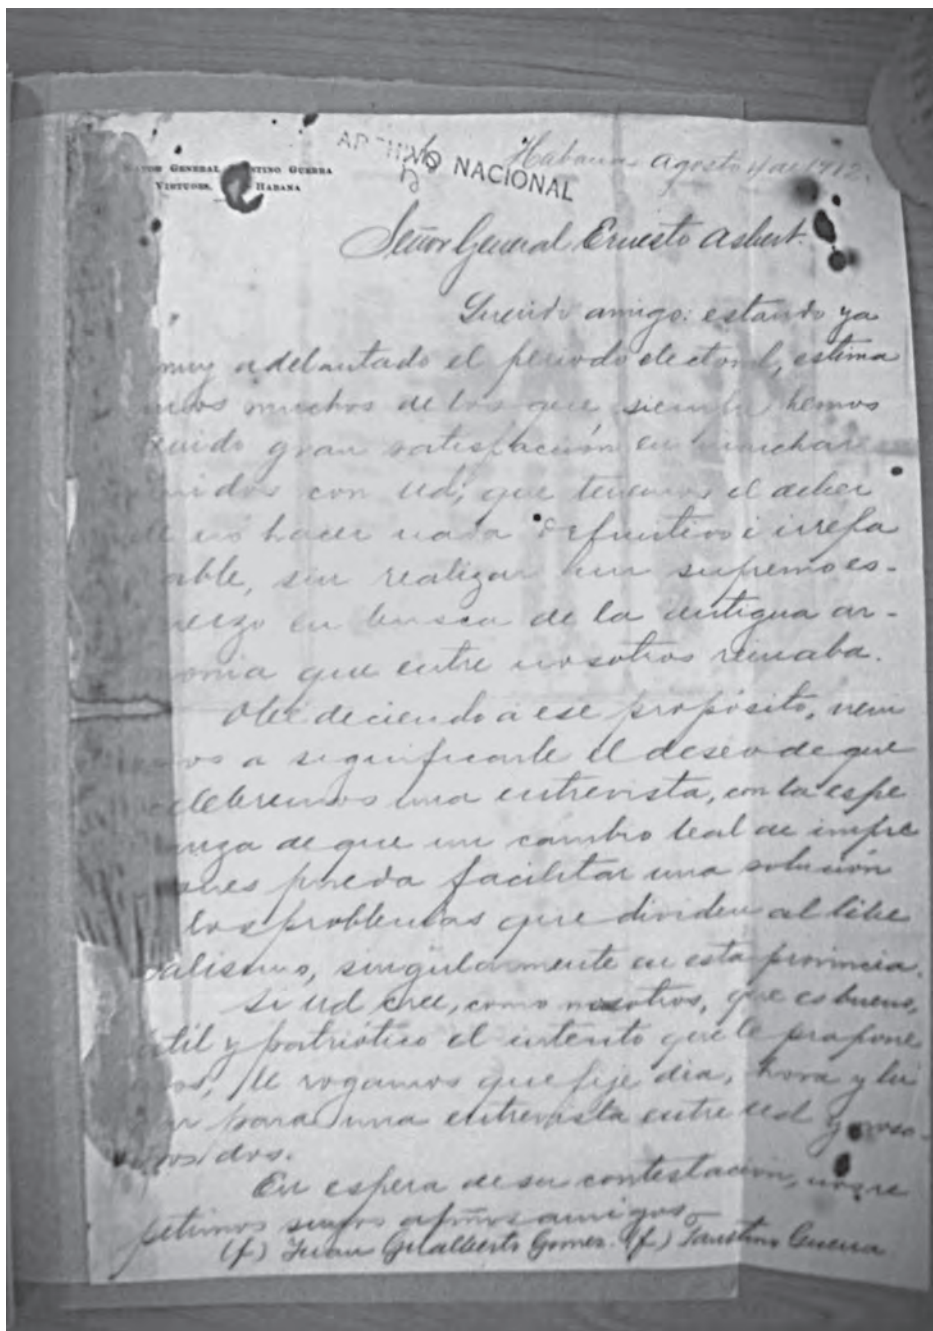 GENERAL STINO GUERRA
VIRTUDES, HABANA
NACIONAL
Habana Agosto de 1912.
Señor General Ernesto Asbert.
Querido amigo: estando ya
muy adelantado el periodo electoral, estima
mos muchos de los que siempre hemos
tenido gran satisfacción en marchar
unidos con Ud; que tenemos el deber
de no hacer nada definitivo é irrepa
able, sin realizar un supremo es-
uerzo en busca de la antigua ar-
monia que entre nosotros reinaba.
Obedeciendo á ese propósito, veni
mos a significarle el deseo de que
celebremos una entrevista, con la espe
anza de que un cambio leal de impre
ones pueda facilitar una solución
los problemas que dividen al libe
ralismo, singularmente en esta provincia.
Si Ud cree, como nosotros, que es bueno,
útil y patriótico el intento que le propone
mos, le rogamos que fije dia, hora y lu
ar para una entrevista entre Ud y noso-
tros dos.
En espera de su contestación, nos re
petimos suyos afmos amigos
(f) Juan Gualberto Gomez. (f) Faustino Guerra